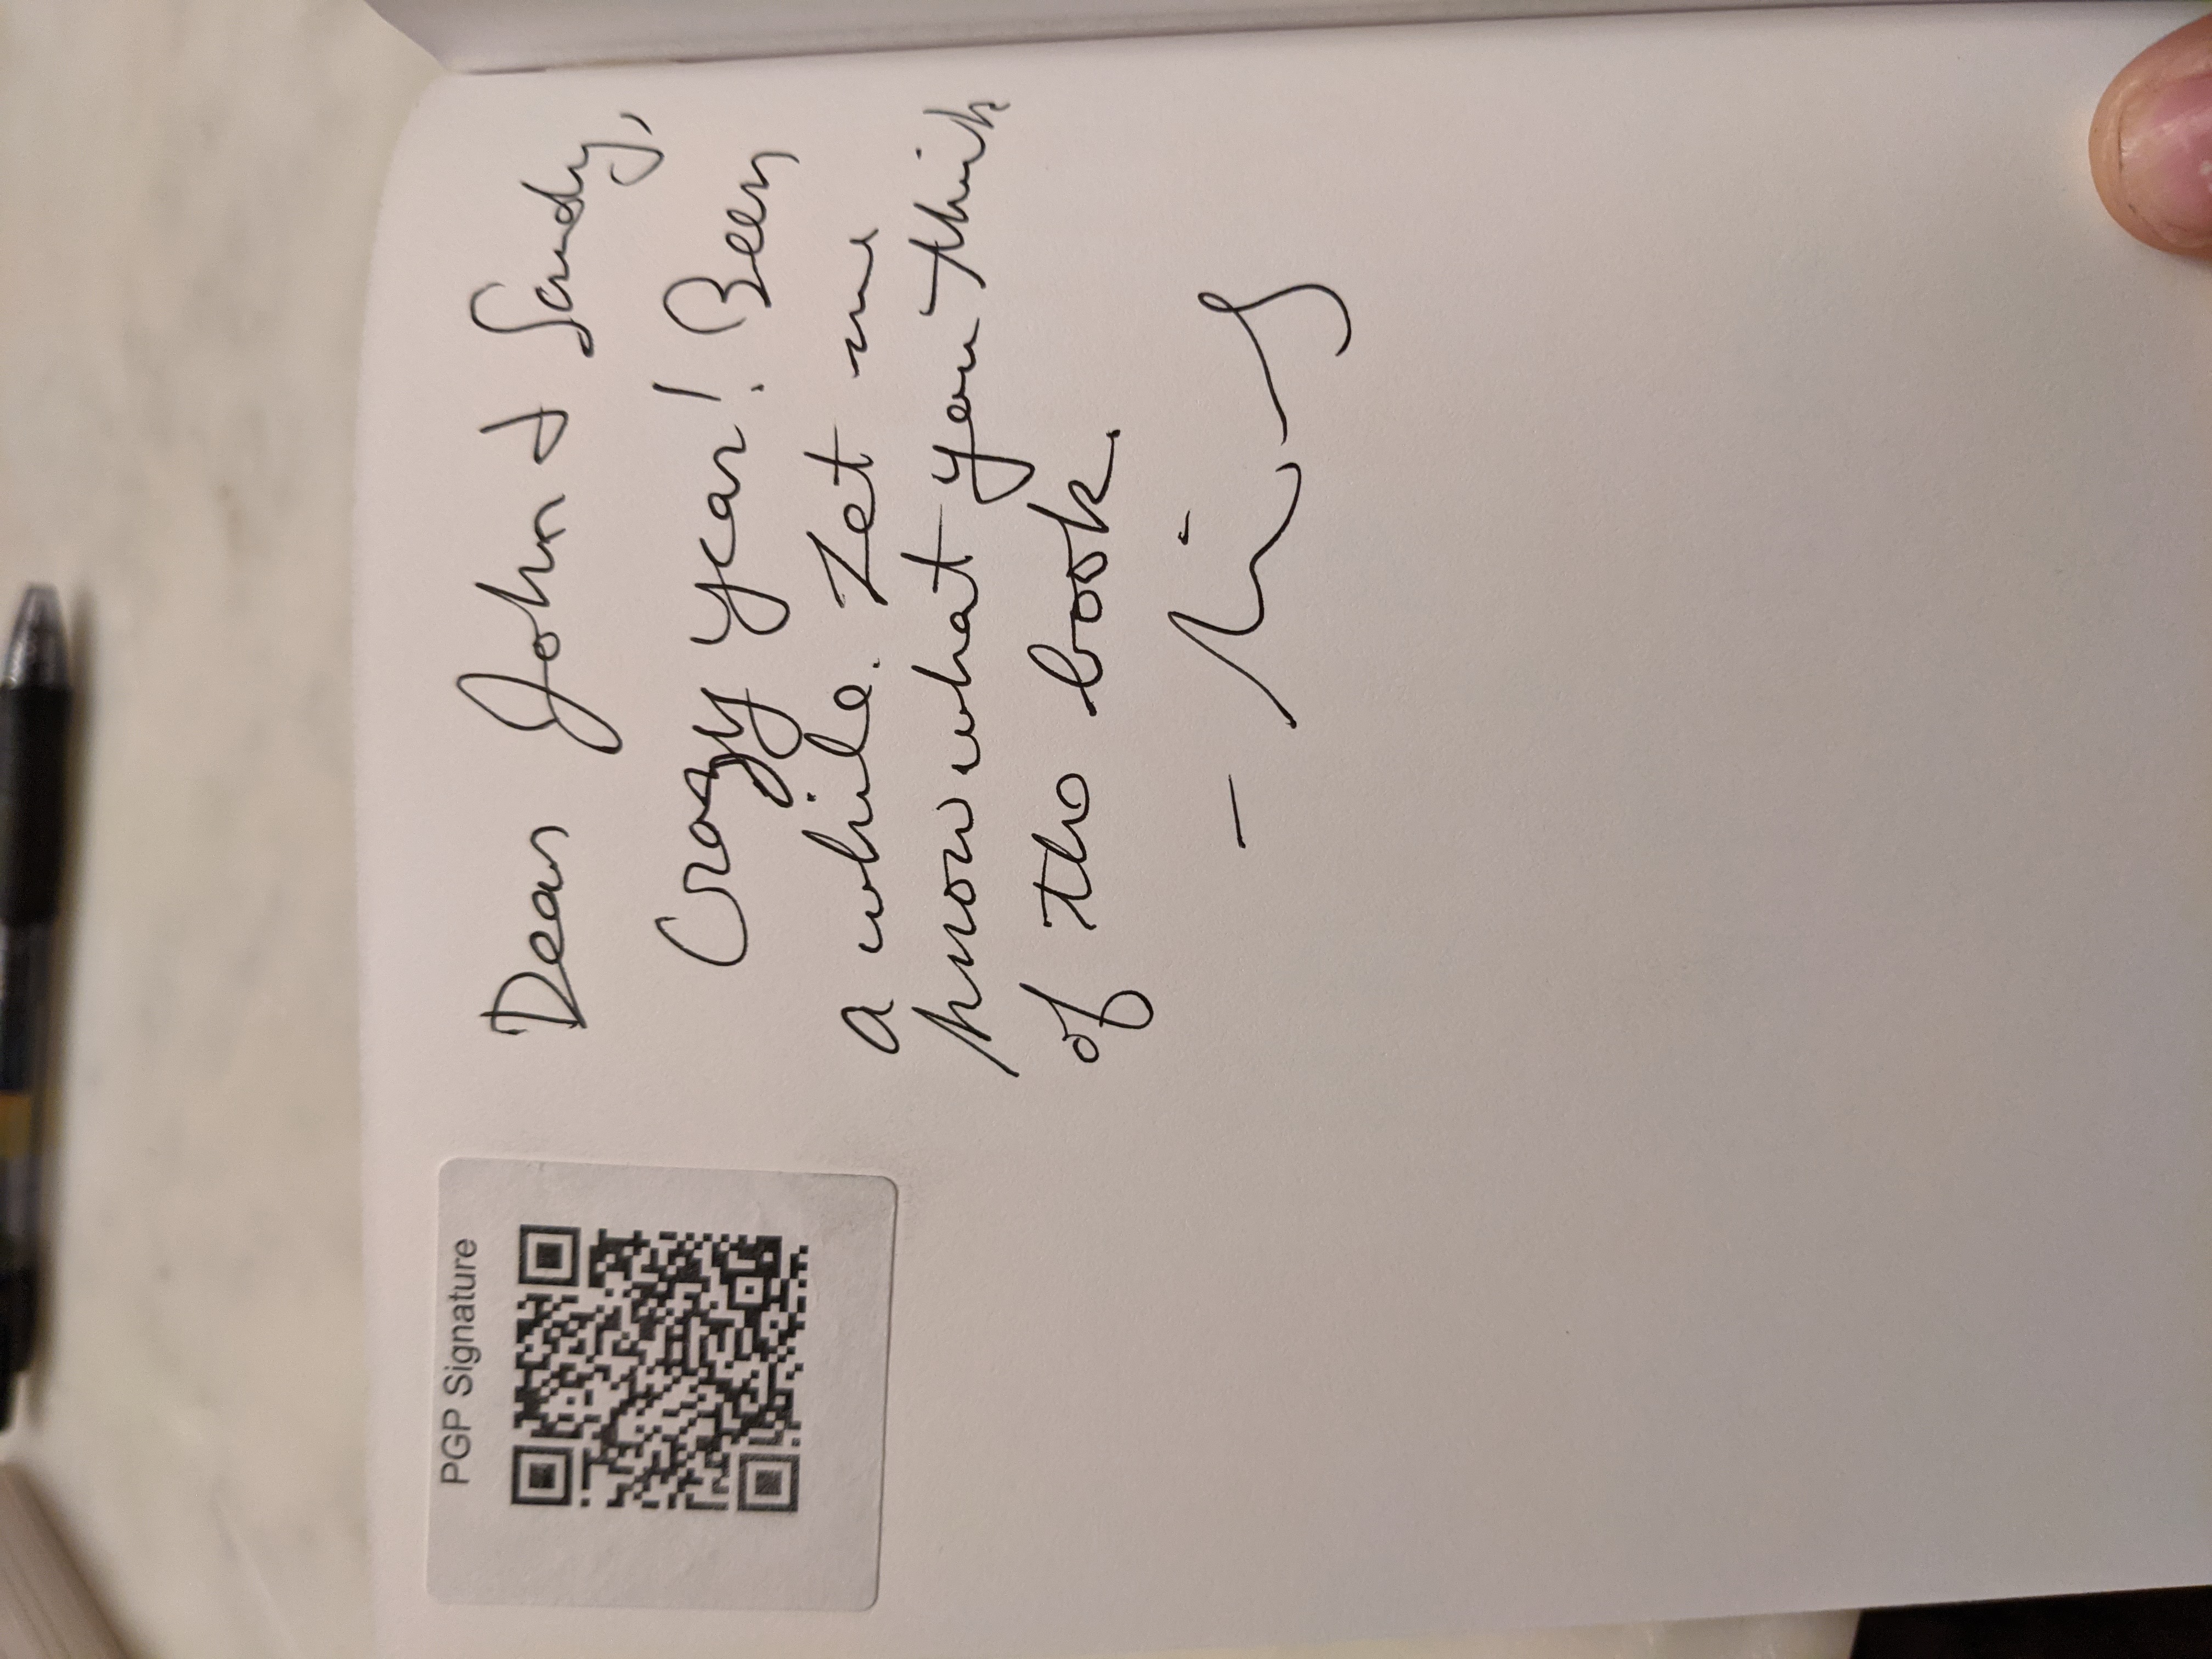 PGP Signature
Dear John & Sandy,
Crazy year! Been
a while. Let me
know what you think
of the book.
-